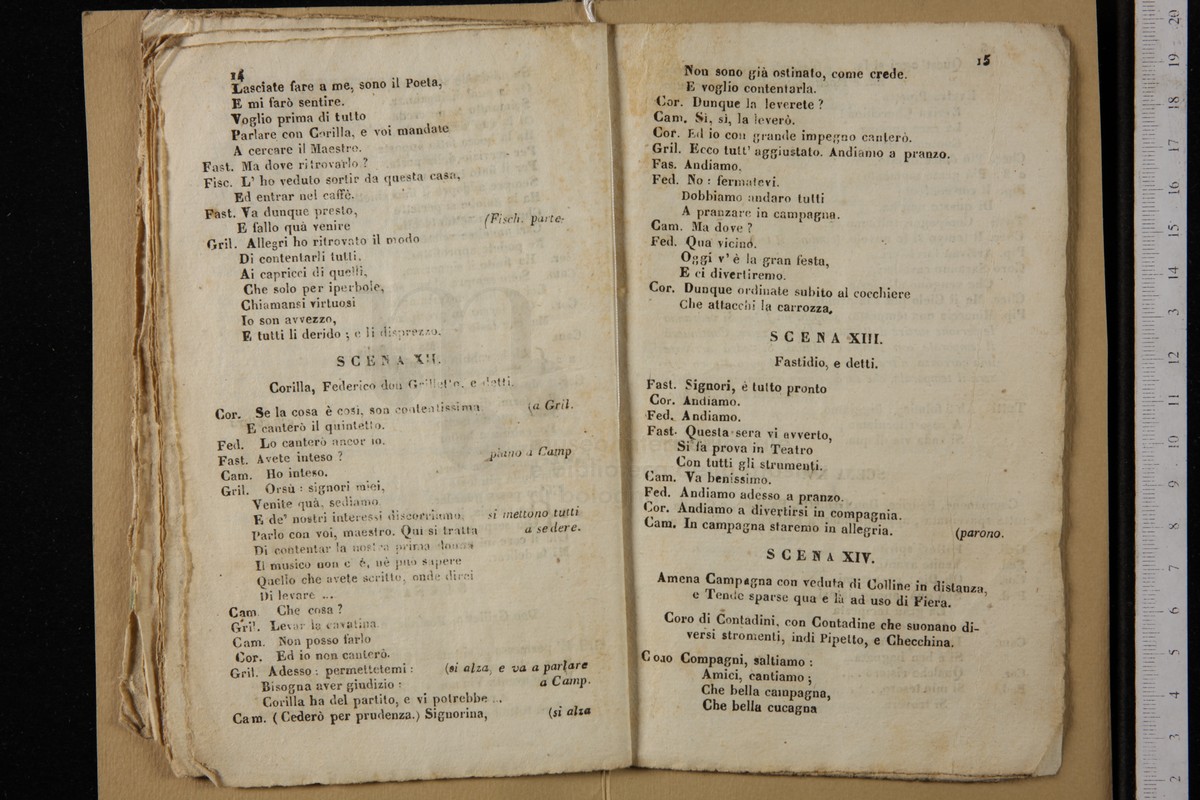 14
Lasciate fare a me, sono il Poeta,
E mi farò sentire.
Voglio prima di tutto
Parlare con Corilla, e voi mandate
A cercare il Maestro.
Fast. Ma dove ritrovarlo ?
Fisc. L' ho veduto sortir da questa casa,
Ed entrar nel caffè.
Fast. Va dunque presto,
E fallo quà venire (Fisch. parte.
Gril. Allegri ho ritrovato il modo
Di contentarli tutti,
Ai capricci di quelli,
Che solo per iperbole,
Chiamansi virtuosi
Io son avvezzo,
E tutti li derido ; e li disprezzo.
SCENA XII.
Corilla, Federico don Grilletto, e detti.
Cor. Se la cosa è così, son contentissima (a Gril.
E canterò il quintetto.
Fed. Lo canterò ancor io.
Fast. Avete inteso ? piano a Camp
Cam. Ho inteso.
Gril. Orsù : signori miei,
Venite quà, sediamo
E de' nostri interessi discorriamo. si mettono tutti
Parlo con voi, maestro. Qui si tratta a sedere.
Di contentar la nostra prima donna
Il musico non c' è, nè può sapere
Quello che avete scritto, onde direi
Di levare ...
Cam. Che cosa ?
Gril. Levar la cavatina
Cam. Non posso farlo
Cor. Ed io non canterò.
Gril. Adesso : permettetemi : (si alza, e va a parlare
Bisogna aver giudizio : a Camp.
Corilla ha del partito, e vi potrebbe ...
Cam. (Cederò per prudenza.) Signorina, (si alza
15
Non sono già ostinato, come crede.
E voglio contentarla.
Cor. Dunque la leverete ?
Cam. Si, sì, la leverò.
Cor. Ed io con grande impegno canterò.
Gril. Ecco tutt' aggiustato. Andiamo a pranzo.
Fas. Andiamo.
Fed. No : fermatevi.
Dobbiamo andaro tutti
A pranzare in campagna.
Cam. Ma dove ?
Fed. Qua vicino.
Oggi v' è la gran festa,
E ci divertiremo.
Cor. Dunque ordinate subito al cocchiere
Che attacchi la carrozza,
SCENA XIII.
Fastidio, e detti.
Fast. Signori, è tutto pronto
Cor. Andiamo.
Fed. Andiamo.
Fast. Questa sera vi avverto,
Si fa prova in Teatro
Con tutti gli strumenti.
Cam. Va benissimo.
Fed. Andiamo adesso a pranzo.
Cor. Andiamo a divertirsi in compagnia.
Cam. In campagna staremo in allegria. (parono.
SCENA XIV.
Amena Campagna con veduta di Colline in distanza,
e Tende sparse qua e là ad uso di Fiera.
Coro di Contadini, con Contadine che suonano di-
versi stromenti, indi Pipetto, e Checchina.
Coro Compagni, saltiamo :
Amici, cantiamo ;
Che bella campagna,
Che bella cucagna